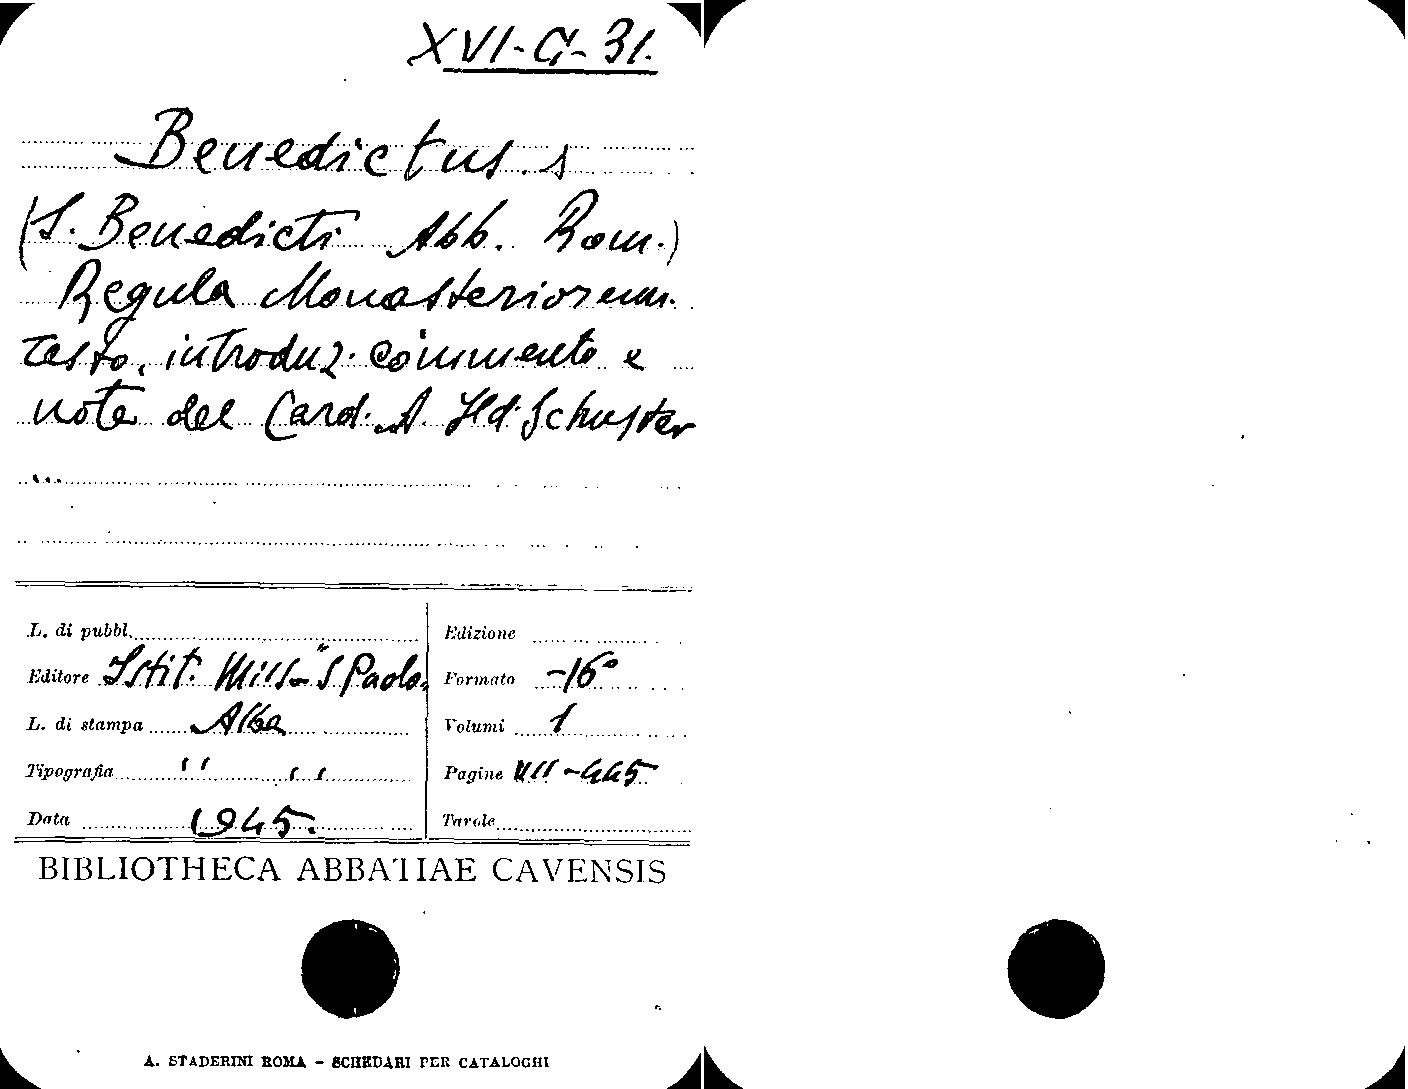 XVI-G-31.
Benedictus. s
(S. Benedicti Abb. Rom.)
Regula Monasteriorum.
testo, introduz. commento e
note del Card. A. Ild. Schuster
L. di pubbl.
Editore Istit. Miss. "S Paolo.
L. di stampa Alba
Tipografia " "
Data 1945.
Edizione
Formato -16°
Volumi 1
Pagine VII-445
Tavole
BIBLIOTHECA ABBATIAE CAVENSIS
A. STADERINI ROMA - SCHEDARI PER CATALOGHI